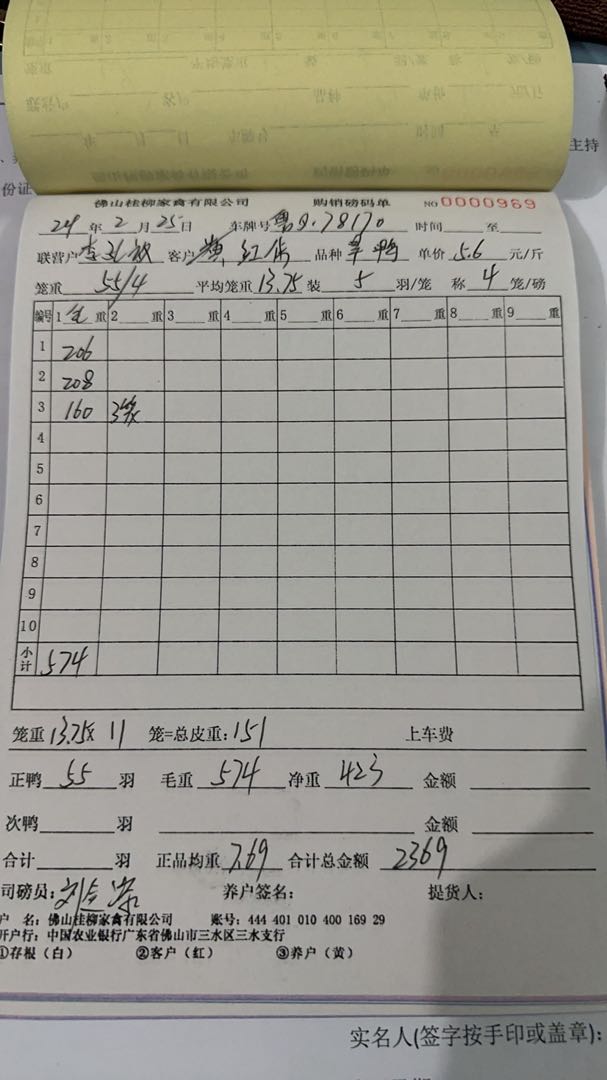 佛山桂柳家禽有限公司 购销磅码单 NO 0000969
24年2月25日 车牌号 78170 时间____至____
联营户 客户 品种 鸭 单价 5.6 元/斤
笼重 55/4 平均笼重 13.75 装 5 羽/笼 称 4 笼/磅
编号 1 重 2 重 3 重 4 重 5 重 6 重 7 重 8 重 9 重
1 206
2 208
3 160 3笼
4
5
6
7
8
9
10
小计 574
笼重 13.75x 11 笼=总皮重: 151 上车费
正鸭 55 羽 毛重 574 净重 423 金额
次鸭____羽 金额
合计____羽 正品均重 7.69 合计总金额 2369
司磅员: 刘 养户签名: 提货人:
户 名: 佛山桂柳家禽有限公司 账号: 444 401 010 400 169 29
开户行: 中国农业银行广东省佛山市三水区三水支行
①存根(白) ②客户(红) ③养户(黄)
实名人(签字按手印或盖章):
主持
份证